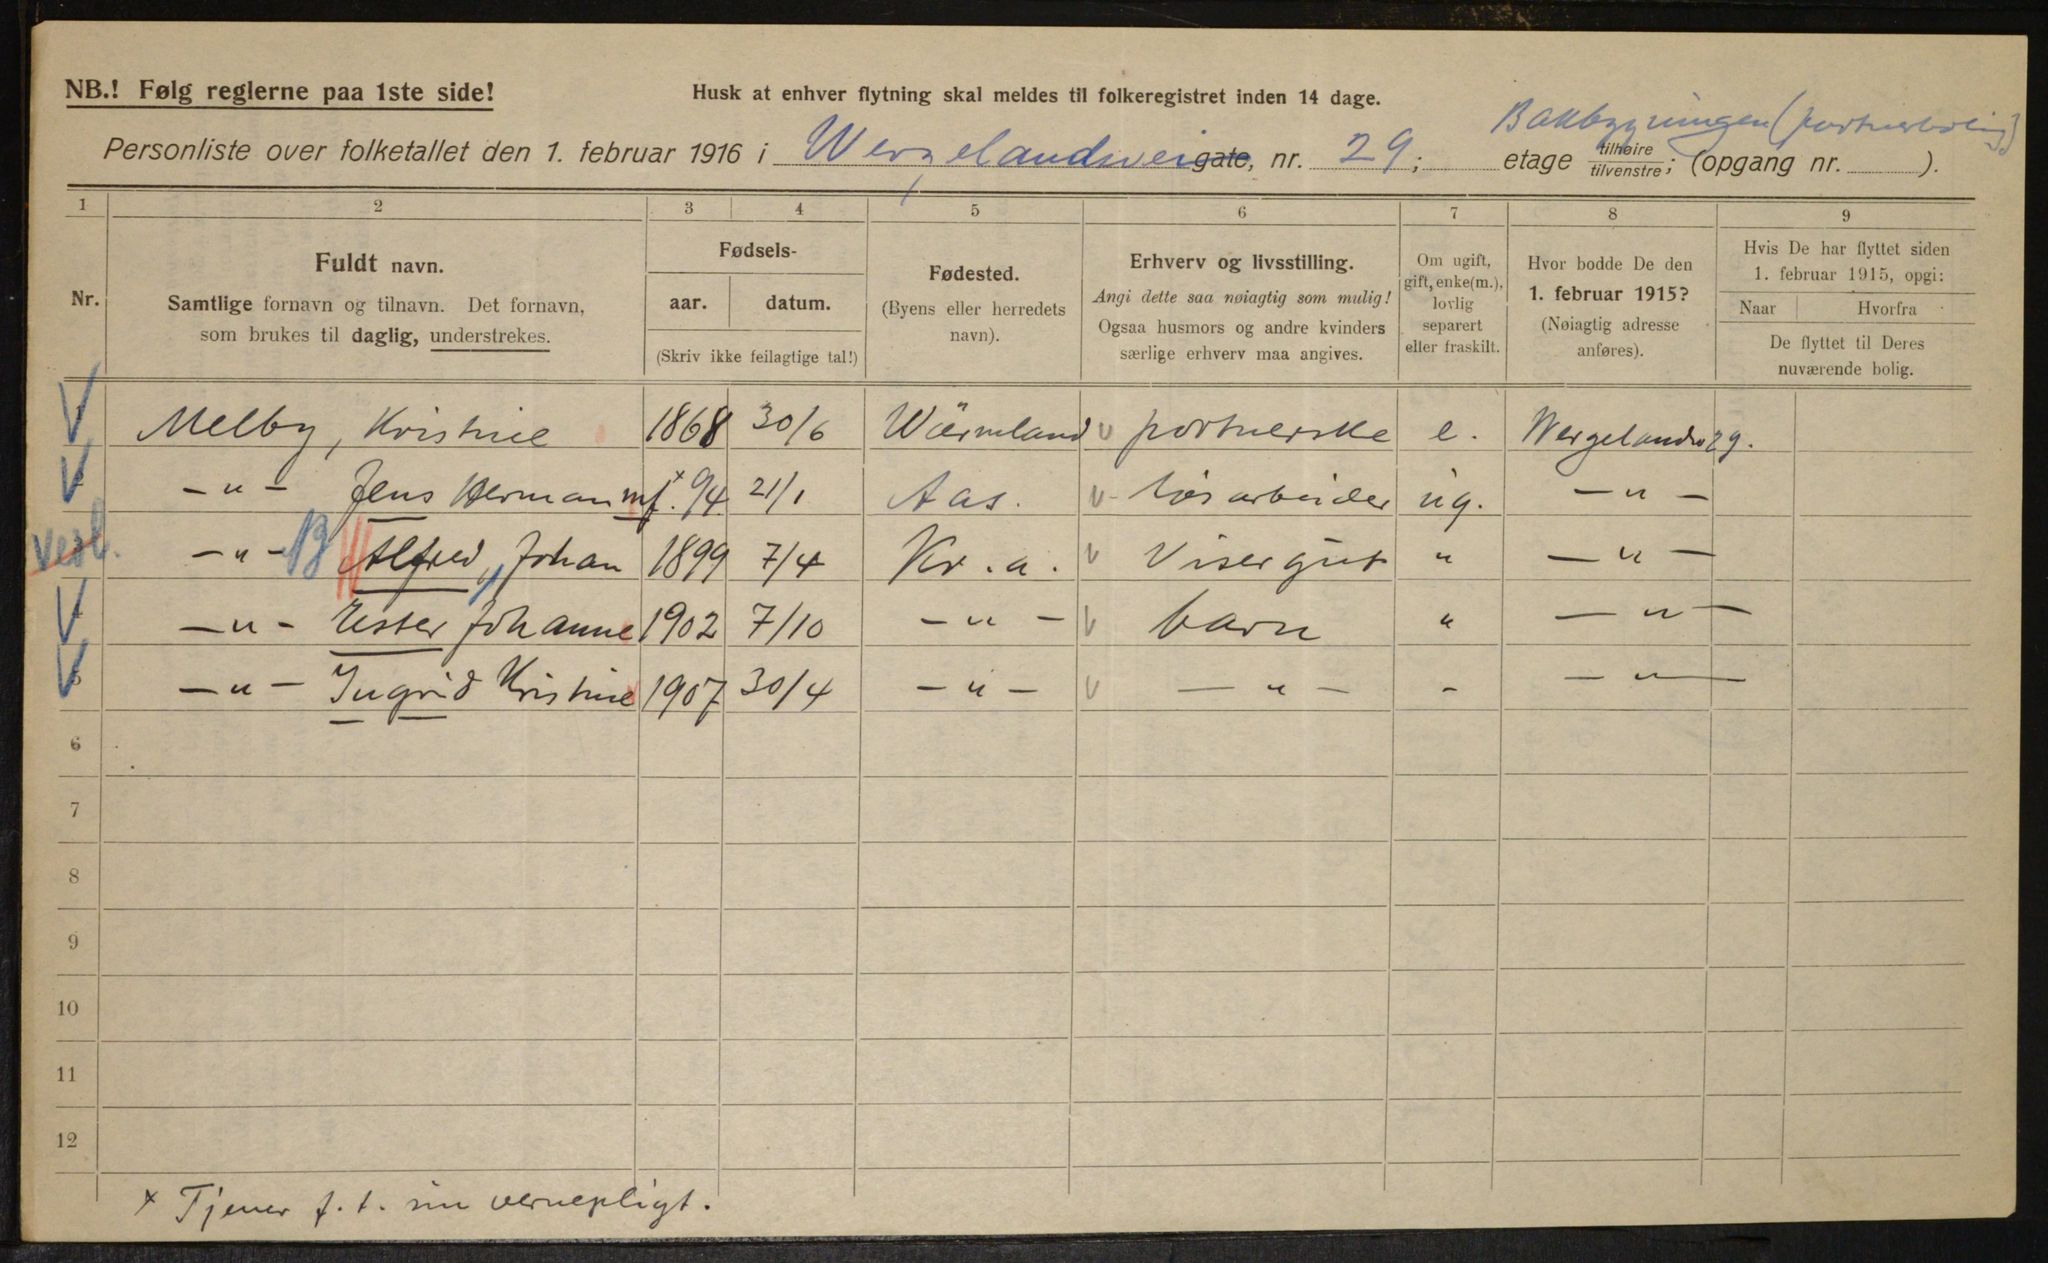 NB.! Følg reglerne paa 1ste side!
Husk at enhver flytning skal meldes til folkeregistret inden 14 dage.
Bakbygningen (portnerbolig)
Personliste over folketallet den 1. februar 1916 i Wergelandsvei gate, nr. 29; etage tilhøire / tilvenstre; (opgang nr. ).
1 2 3 4 5 6 7 8 9
Nr.
Fuldt navn.
Samtlige fornavn og tilnavn. Det fornavn,
som brukes til daglig, understrekes.
Fødsels-
aar. datum.
(Skriv ikke feilagtige tal!)
Fødested.
(Byens eller herredets
navn).
Erhverv og livsstilling.
Angi dette saa nøiagtig som mulig!
Ogsaa husmors og andre kvinders
særlige erhverv maa angives.
Om ugift,
gift, enke(m.),
lovlig
separert
eller fraskilt.
Hvor bodde De den
1. februar 1915?
(Nøiagtig adresse
anføres).
Hvis De har flyttet siden
1. februar 1915, opgi:
Naar Hvorfra
De flyttet til Deres
nuværende bolig.
V Melby, Kristine 1868 30/6 Wärmland v portnerske e. Wergelandsv 29.
V 2 — " — Jens Herman mf. x 94 21/1 Aas. v løsarbeider ug. — " —
— " — B Alfred, Johan 1899 7/4 Kr. a. v Visergut " — " —
V — " — Ester Johanne 1902 7/10 — " — v barn " — " —
V 5 — " — Ingrid Kristine 1907 30/4 — " — v — " — - — " —
6
7
8
9
10
11
12
x Tjener f. t. sin vernepligt.